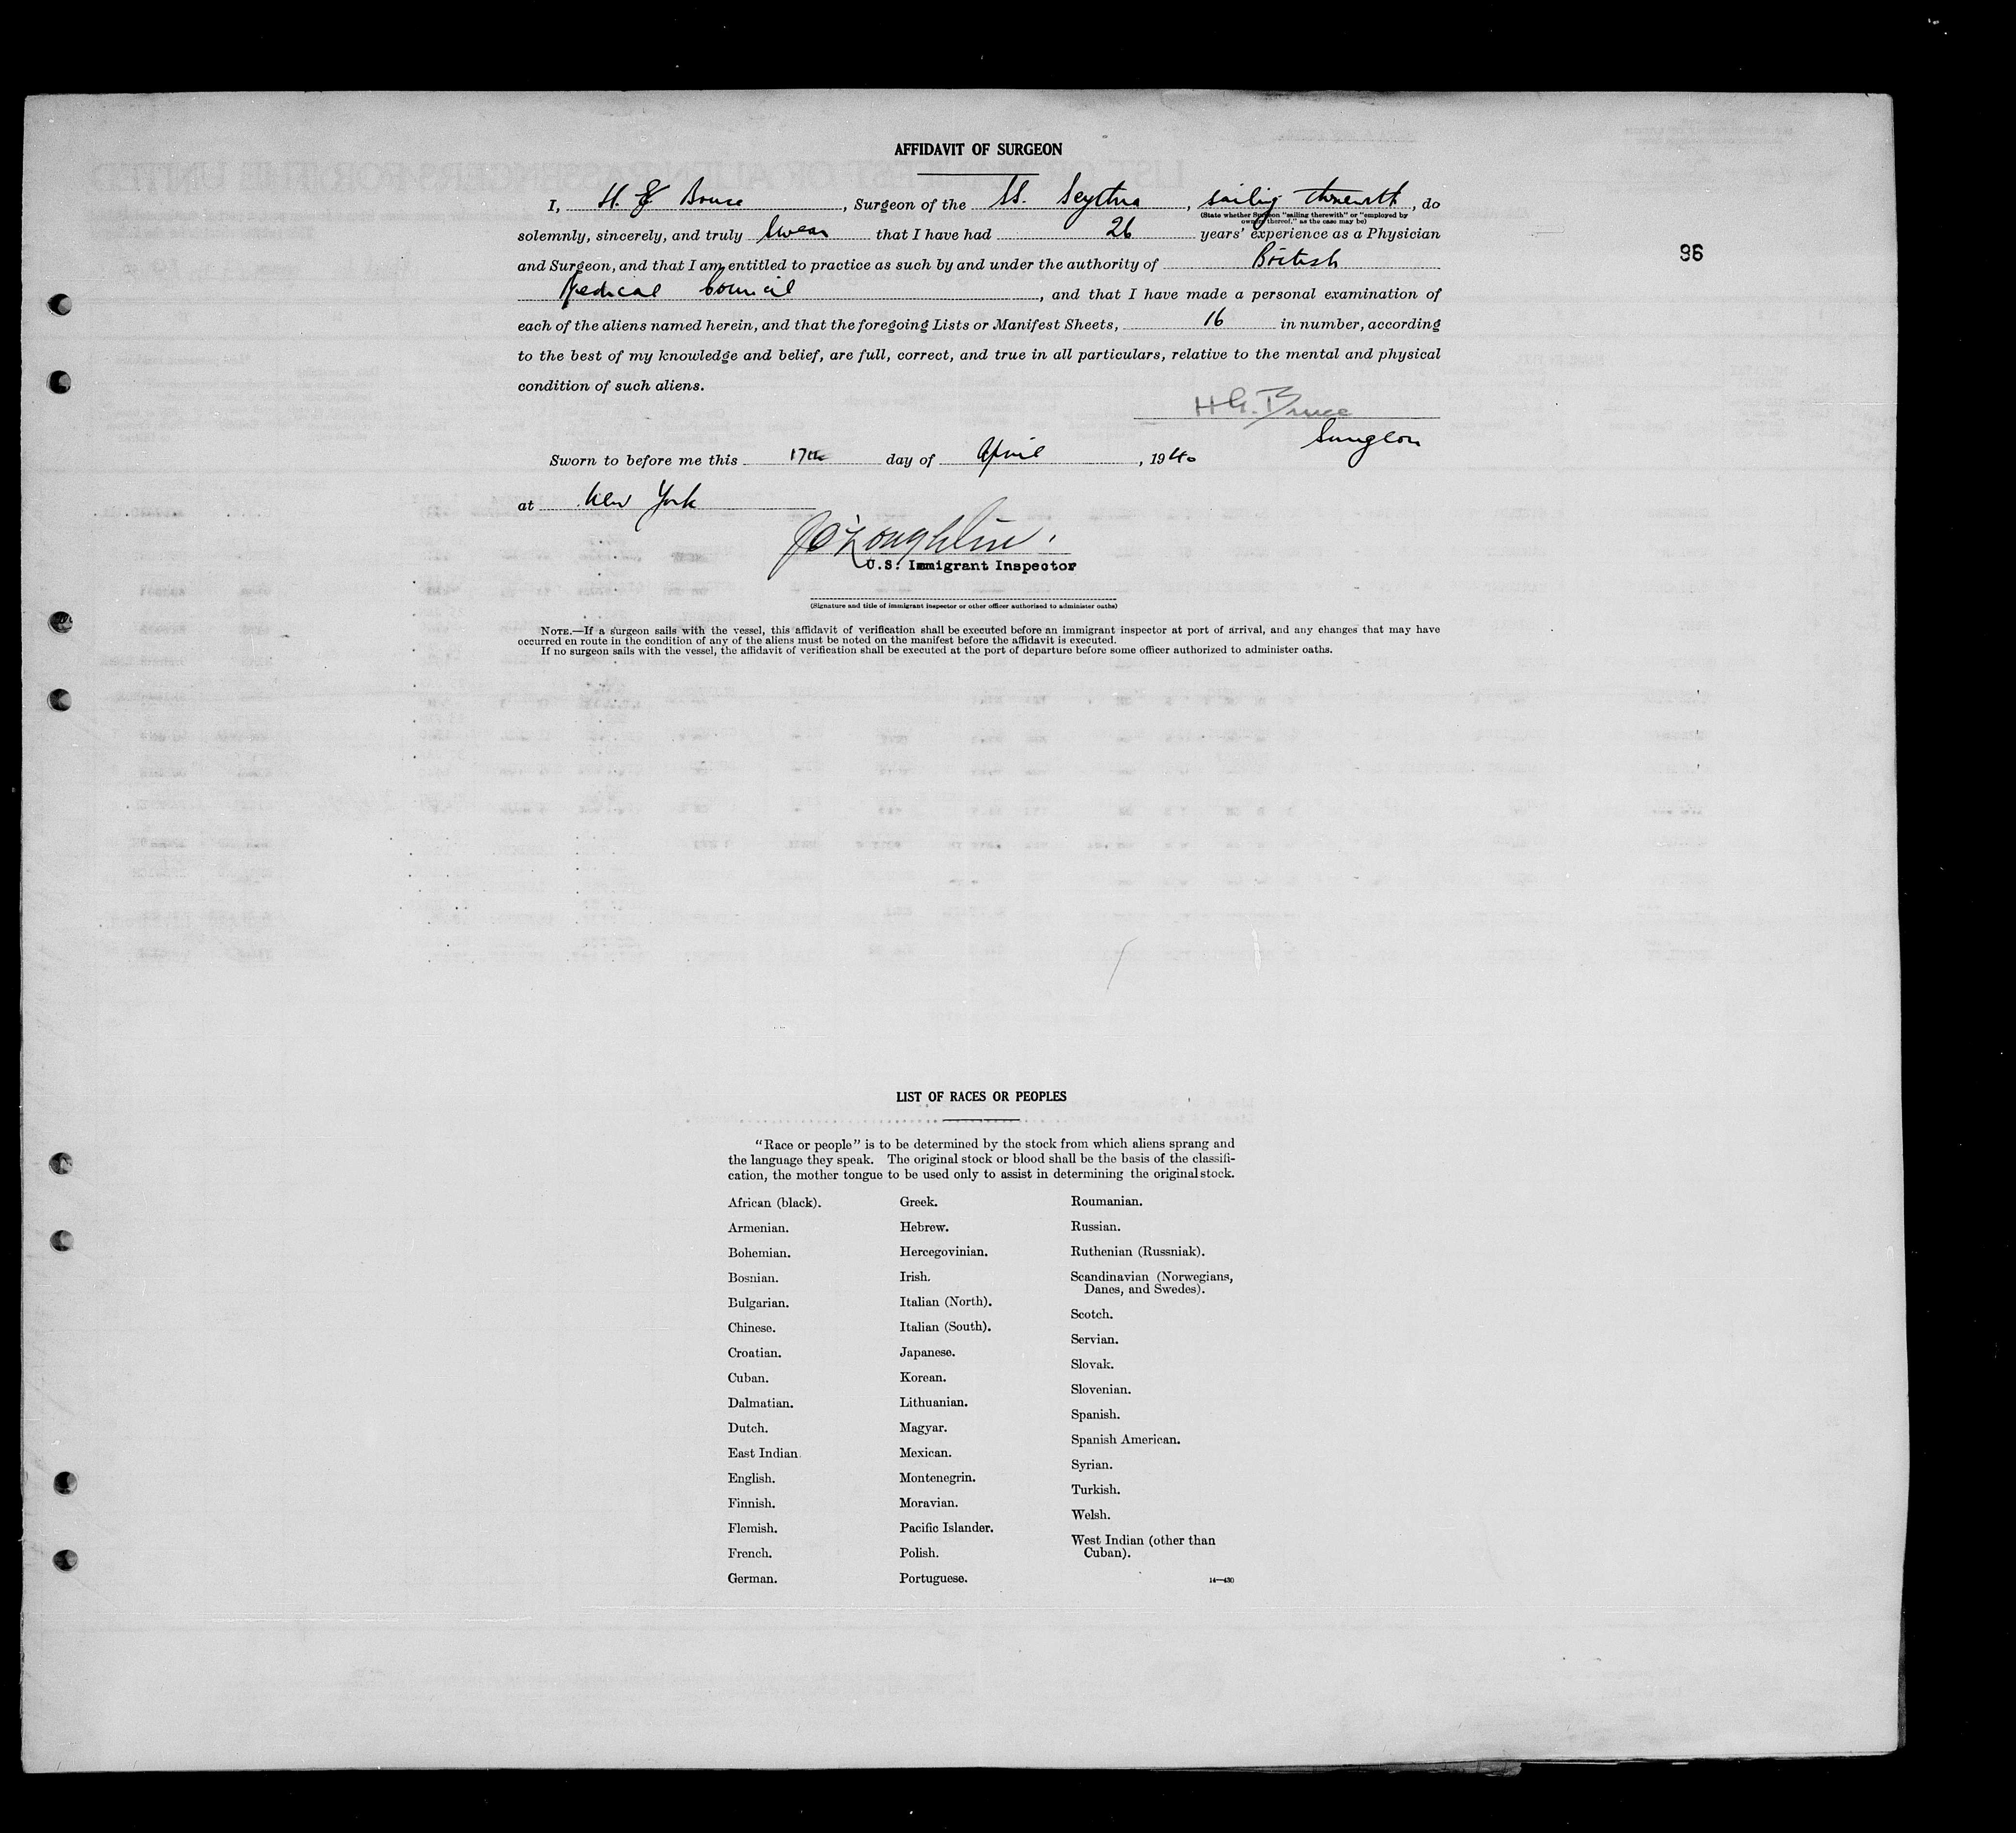 AFFIDAVIT OF SURGEON
I, H. G. Bruce, Surgeon of the SS. Scythia, sailing therewith, do
(State whether Surgeon "sailing therewith" or "employed by
owner thereof," as the case may be)
solemnly, sincerely, and truly swear that I have had 26 years' experience as a Physician
96
and Surgeon, and that I am entitled to practice as such by and under the authority of British
Medical Council, and that I have made a personal examination of
each of the aliens named herein, and that the foregoing Lists or Manifest Sheets, 16 in number, according
to the best of my knowledge and belief, are full, correct, and true in all particulars, relative to the mental and physical
condition of such aliens.
H G. Bruce
Surgeon
Sworn to before me this 17th day of April, 1940
at New York
J O'Loughlin.
U.S. Immigrant Inspector
(Signature and title of immigrant inspector or other officer authorized to administer oaths)
NOTE.—If a surgeon sails with the vessel, this affidavit of verification shall be executed before an immigrant inspector at port of arrival, and any changes that may have
occurred en route in the condition of any of the aliens must be noted on the manifest before the affidavit is executed.
If no surgeon sails with the vessel, the affidavit of verification shall be executed at the port of departure before some officer authorized to administer oaths.
LIST OF RACES OR PEOPLES
"Race or people" is to be determined by the stock from which aliens sprang and
the language they speak. The original stock or blood shall be the basis of the classifi-
cation, the mother tongue to be used only to assist in determining the original stock.
African (black).
Armenian.
Bohemian.
Bosnian.
Bulgarian.
Chinese.
Croatian.
Cuban.
Dalmatian.
Dutch.
East Indian.
English.
Finnish.
Flemish.
French.
German.
Greek.
Hebrew.
Hercegovinian.
Irish.
Italian (North).
Italian (South).
Japanese.
Korean.
Lithuanian.
Magyar.
Mexican.
Montenegrin.
Moravian.
Pacific Islander.
Polish.
Portuguese.
Roumanian.
Russian.
Ruthenian (Russniak).
Scandinavian (Norwegians,
Danes, and Swedes).
Scotch.
Servian.
Slovak.
Slovenian.
Spanish.
Spanish American.
Syrian.
Turkish.
Welsh.
West Indian (other than
Cuban).
14—430